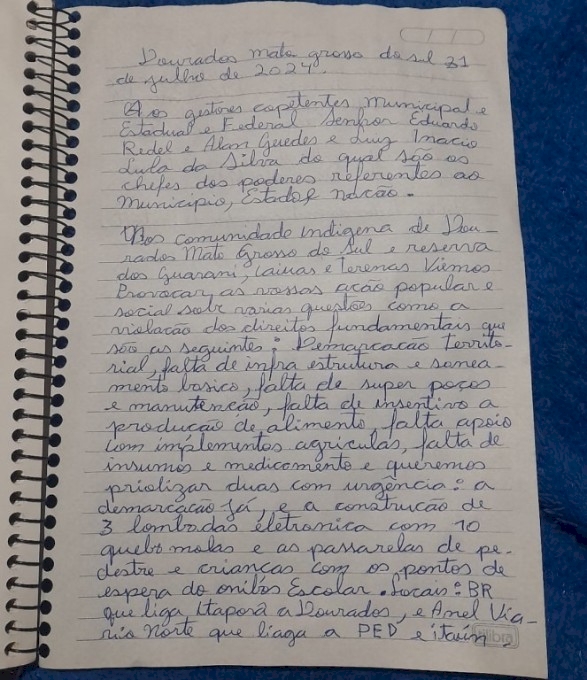 Dourados mato grosso do sul 31
de julho de 2024.
Aos gestores copetentes, municipal e
Estadual e Federal senhor Eduardo
Redel e Alan Guedes e Luiz Inacio
Lula da Silva do qual são os
chefes dos poderes referentes ao
município, Estado e nação.
Nos comunidade indigena de Dou-
rados Mato Grosso do Sul e reserva
dos Guarani, caiuas e terenas Viemos
Provocar, as vossas ação popular e
social sobr varias questões como a
violação dos direitos fundamentais que
são as seguintes: Demarcação territo-
rial, falta de infra estrutura e sanea-
mento basico, falta de super poços
e manutencão, falta de insentivo a
producão de alimento, falta apoio
com implementos agriculas, falta de
insumos e medicamento e queremos
priolizar duas com urgência: a
demarcação já, e a construcão de
3 lombadas eletronica com 10
quebo molas e as passarelas de pe-
destre e crianças com os pontos de
espera do onibos Escolar. Locais: BR
que liga Itaporã a Dourados, e Anel Viá-
rio Norte que liaga a PED e itaum